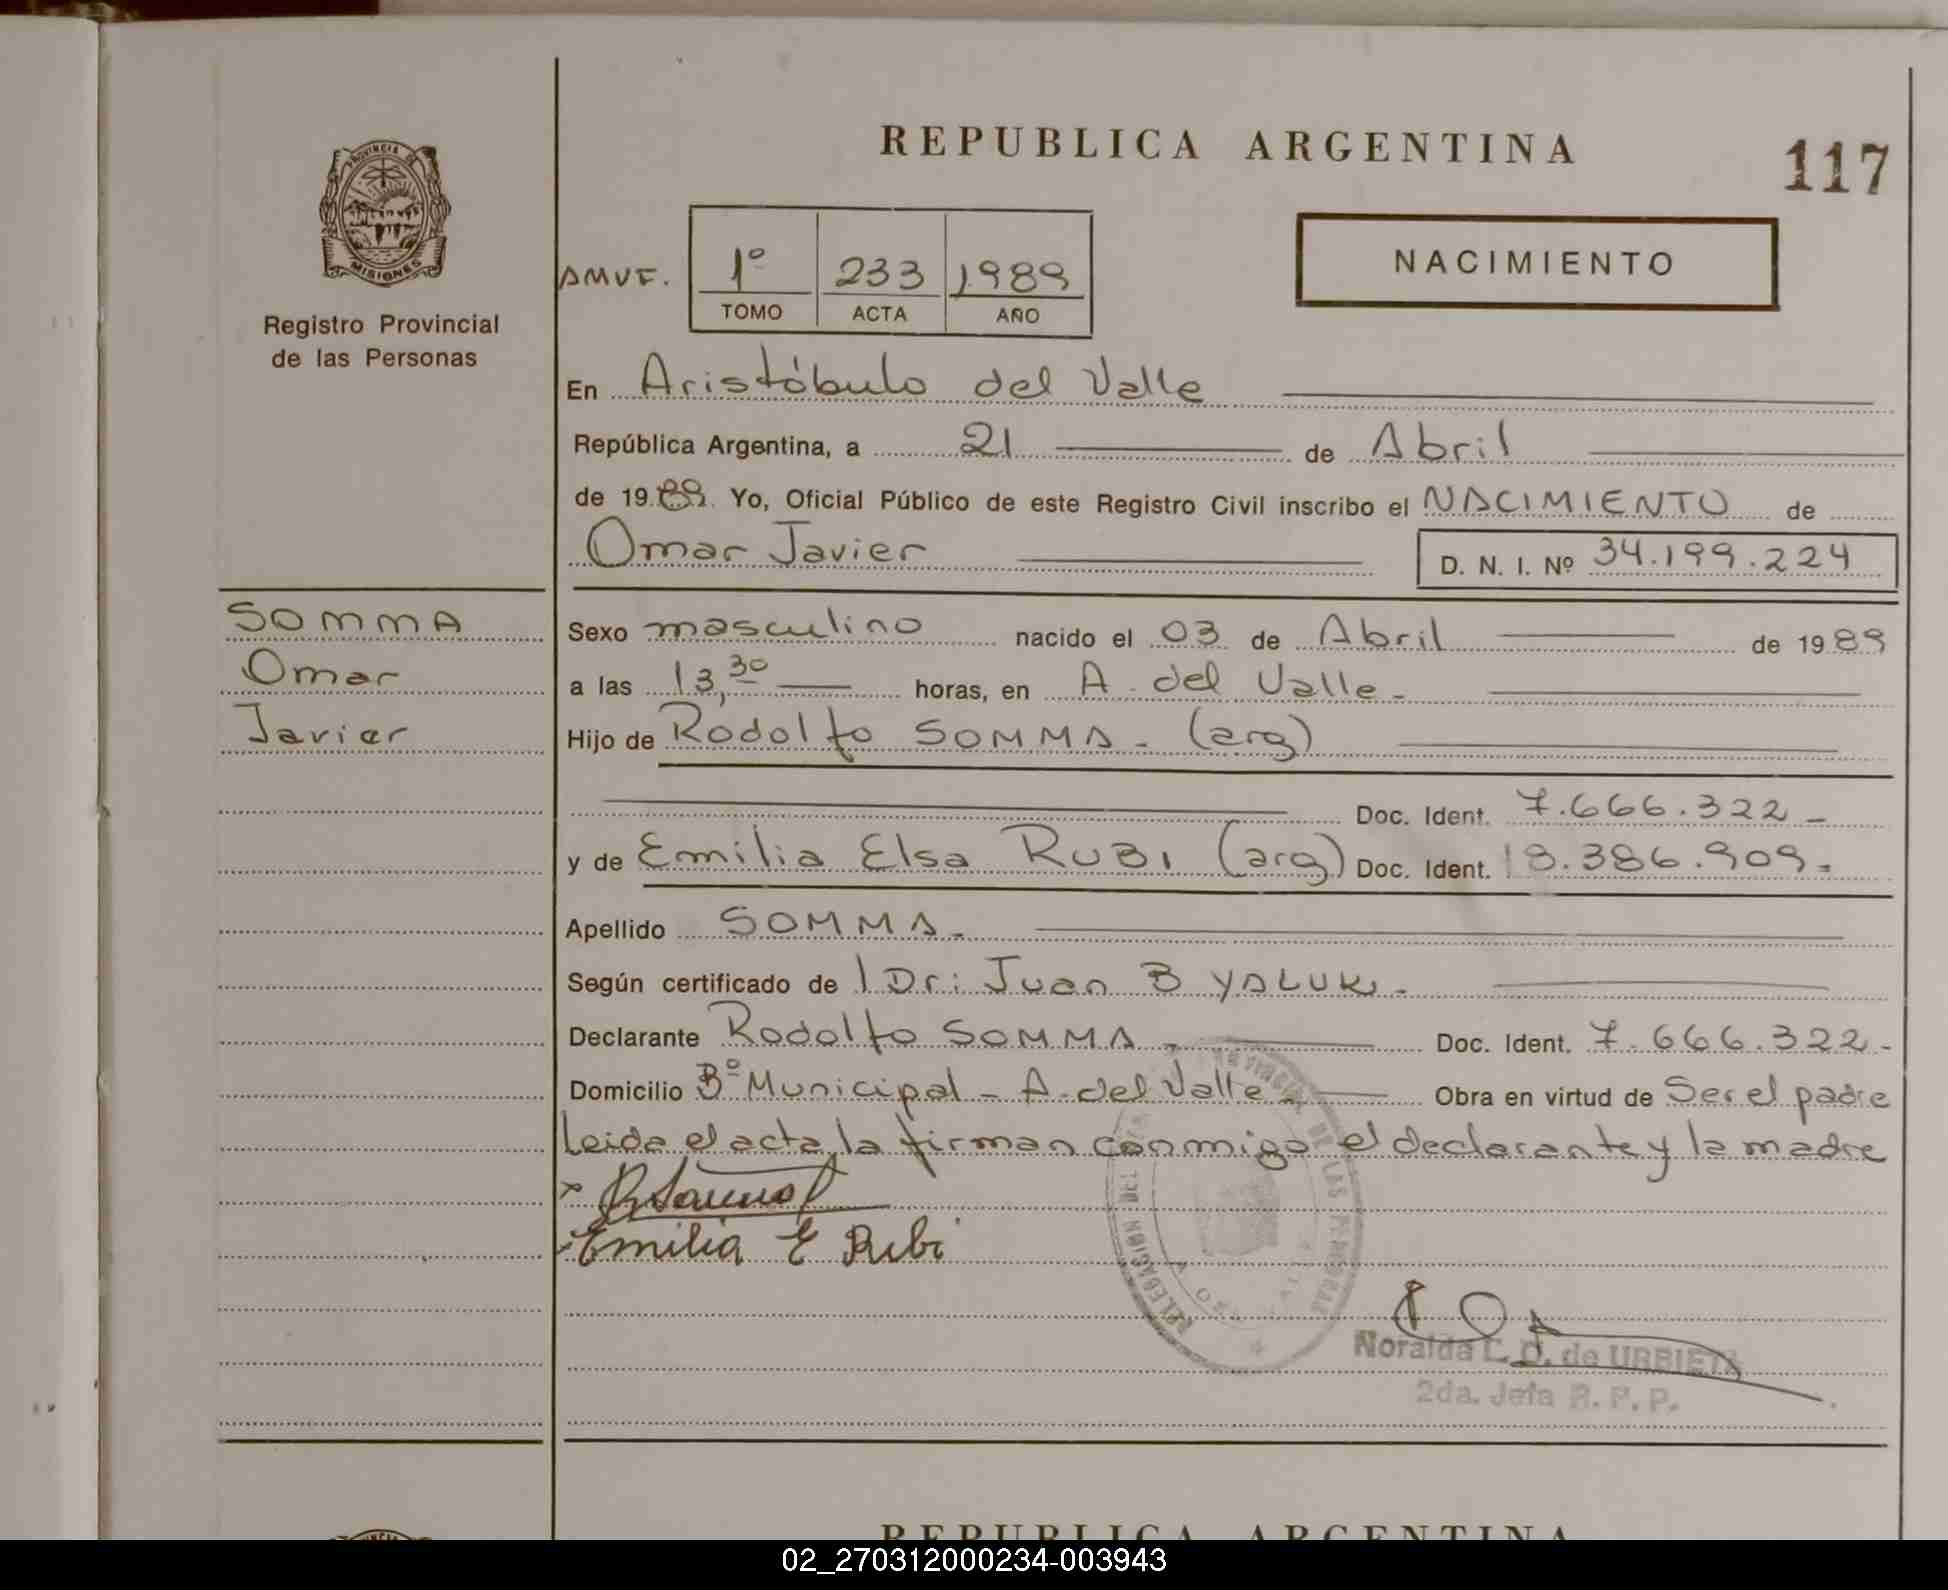 REPUBLICA ARGENTINA
117
PROVINCIA DE
MISIONES
Registro Provincial
de las Personas
AMVE.
1º 233 1989
TOMO ACTA AÑO
NACIMIENTO
En Aristóbulo del Valle
República Argentina, a 21 de Abril
de 19 89 Yo, Oficial Público de este Registro Civil inscribo el NACIMIENTO de
Omar Javier
D. N. I. Nº 34.199.224
SOMMA
Omar
Javier
Sexo masculino nacido el 03 de Abril de 19 89
a las 13,30 horas, en A. del Valle-
Hijo de Rodolfo SOMMA - (arg)
Doc. Ident. 7.666.322-
y de Emilia Elsa RUBI (arg) Doc. Ident. 18.386.909-
Apellido SOMMA-
Según certificado de l Dr: Juan B YALUK-
Declarante Rodolfo SOMMA - Doc. Ident. 7.666.322-
Domicilio Bº Municipal - A. del Valle - Obra en virtud de Ser el padre
Leida el acta, la firman conmigo el declarante y la madre
Emilia E Rubi
DELEGACION DEL PROVINCIAL DE LAS PERSONAS
Noralda C. D. de URBIETA
2da. Jefa R. P. P.
REPUBLICA ARGENTINA
02_270312000234-003943